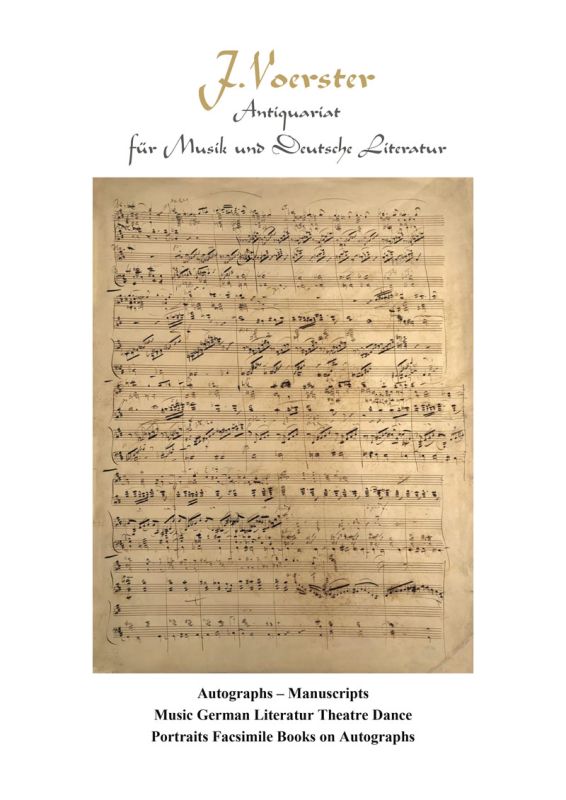 J. Voerster
Antiquariat
für Musik und Deutsche Literatur
Autographs – Manuscripts
Music German Literatur Theatre Dance
Portraits Facsimile Books on Autographs